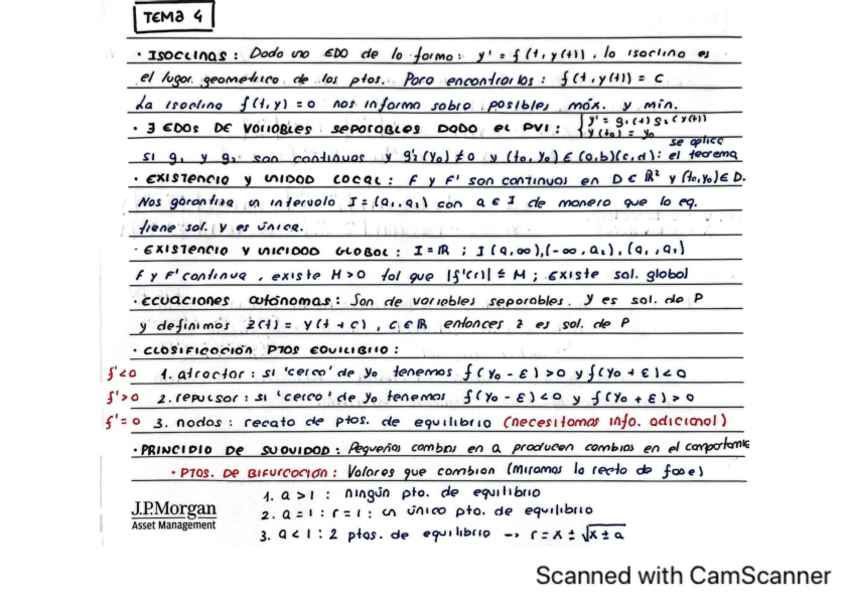 TEMA 4
· ISOCLINAS : Dada una EDO de la forma : y' = f(t, y(t)), la isoclina es
el lugar geométrico de los ptos. Para encontrarlas : f(t, y(t)) = c
La isoclina f(t, y) = 0 nos informa sobre posibles máx. y min.
· ∃ EDOS DE VARIABLES SEPARABLES DADO EL PVI : { y' = g₁(t) g₂(y(t))
y(t₀) = y₀
se aplica
si g₁ y g₂ son continuas y g'₂(y₀) ≠ 0 y (t₀, y₀) ∈ (a,b)(c,d) : el teorema
· EXISTENCIA y UNIDAD LOCAL : F y F' son continuas en D ⊂ ℝ² y (t₀, y₀) ∈ D.
Nos garantiza un intervalo I = (a₁, a₁) con a ∈ I de manera que la eq.
tiene sol. y es única.
· EXISTENCIA y UNICIDAD GLOBAL : I = ℝ ; I (a, ∞), (-∞, a₁), (a₁, a₁)
F y F' continua, existe M > 0 tal que |f'(r)| ≤ M ; existe sol. global
· ECUACIONES autónomas : Son de variables separables. y es sol. de P
y definimos z(t) = y(t + c), c ∈ ℝ entonces z es sol. de P
· CLASIFICACIÓN PTOS EQUILIBRIO :
f'<0 1. atractor : si 'cerca' de y₀ tenemos f(y₀ - ε) > 0 y f(y₀ + ε) < 0
f'>0 2. repulsor : si 'cerca' de y₀ tenemos f(y₀ - ε) < 0 y f(y₀ + ε) > 0
f'=0 3. nodos : recata de ptos. de equilibrio (necesitamos info. adicional)
· PRINCIPIO DE SUAVIDAD : Pequeños cambios en a producen cambios en el comportamie
· PTOS. DE BIFURCACIÓN : Valores que cambian (Miramos la recta de fase)
1. a > 1 : ningún pto. de equilibrio
2. a = 1 : r = 1 : un único pto. de equilibrio
3. a < 1 : 2 ptos. de equilibrio → r = x ± √x ± a
J.P.Morgan
Asset Management
Scanned with CamScanner